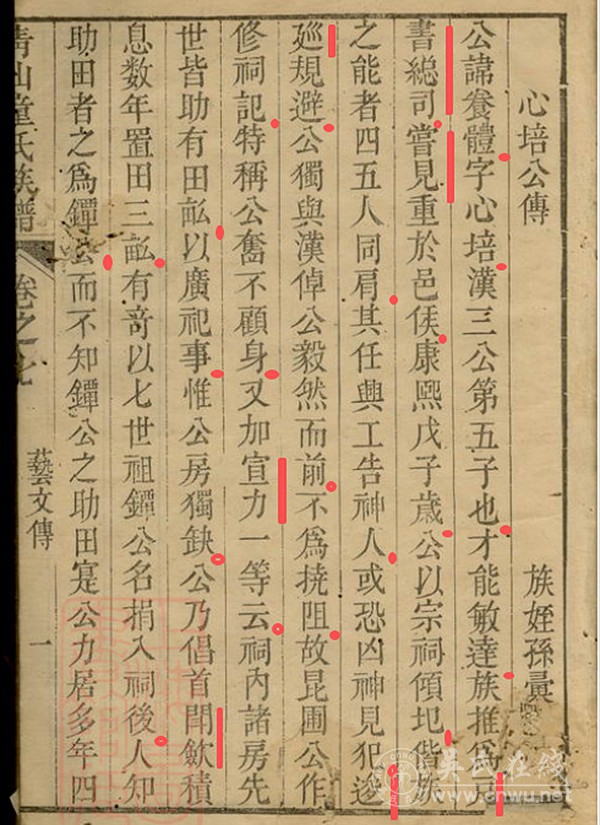 心培公傳
族姪孫彙
公諱養體字心培漢三公第五子也才能敏達族推爲戶
書總司嘗見重於邑侯康熙戊子歳公以宗祠傾圮偕族
之能者四五人同肩其任興工告神人或恐凶神見犯逡
廵規避公獨與漢倬公毅然而前不爲撓阻故昆圃公作
修祠記特稱公奮不顧身又加宣力一等云祠內諸房先
世皆助有田畝以廣祀事惟公房獨缺公乃倡首閗歛積
息数年置田三畝有竒以七世祖鐔公名捐入祠後人知
助田者之爲鐔公而不知鐔公之助田寔公力居多年四
青山童氏族譜
卷之
藝文傳
一
吳氏在线